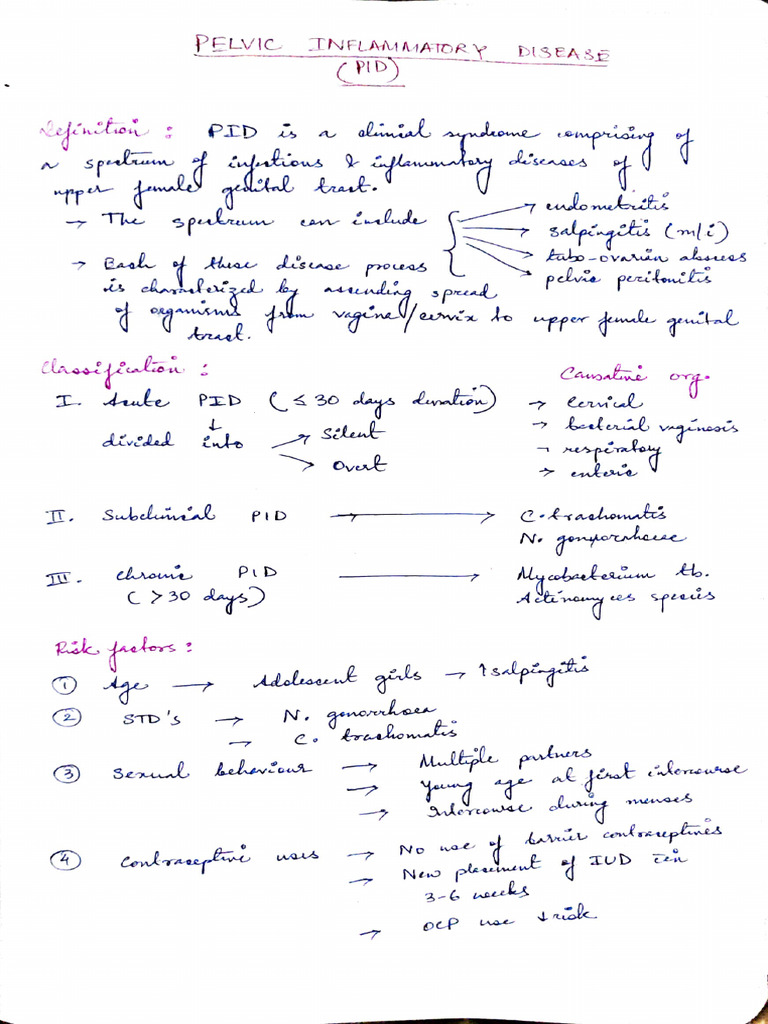 PELVIC INFLAMMATORY DISEASE
(PID)
Definition : PID is a clinical syndrome comprising of
a spectrum of infections & inflammatory diseases of
upper female genital tract.
→ The spectrum can include
→ endometritis
→ salpingitis (m/i)
→ tubo-ovarian abscess
→ pelvic peritonitis
→ Each of these disease process
is characterized by ascending spread
of organisms from vagina/cervix to upper female genital
tract.
Classification : Causative org.
I. Acute PID (≤ 30 days duration) → Cervical
↓ → bacterial vaginosis
divided into → Silent → respiratory
→ Overt → enteric
II. Subclinical PID → C. trachomatis
N. gonorrhoeae
III. Chronic PID → Mycobacterium tb.
(>30 days) Actinomyces species
Risk factors :
① Age → Adolescent girls → ↑salpingitis
② STD's → N. gonorrhoea
→ C. trachomatis
③ Sexual behaviour → Multiple partners
→ Young age at first intercourse
→ Intercourse during menses
④ Contraceptive uses → No use of barrier contraceptives
→ New placement of IUD c̄in
3-6 weeks
→ OCP use ↓risk